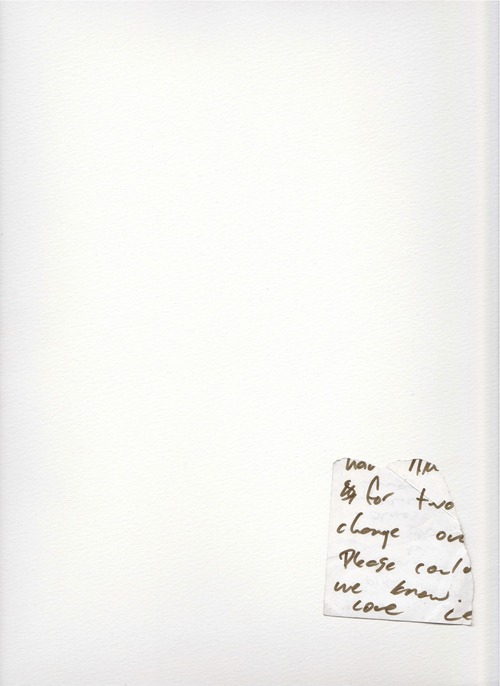 for two
change ove
Please could
we know.
love